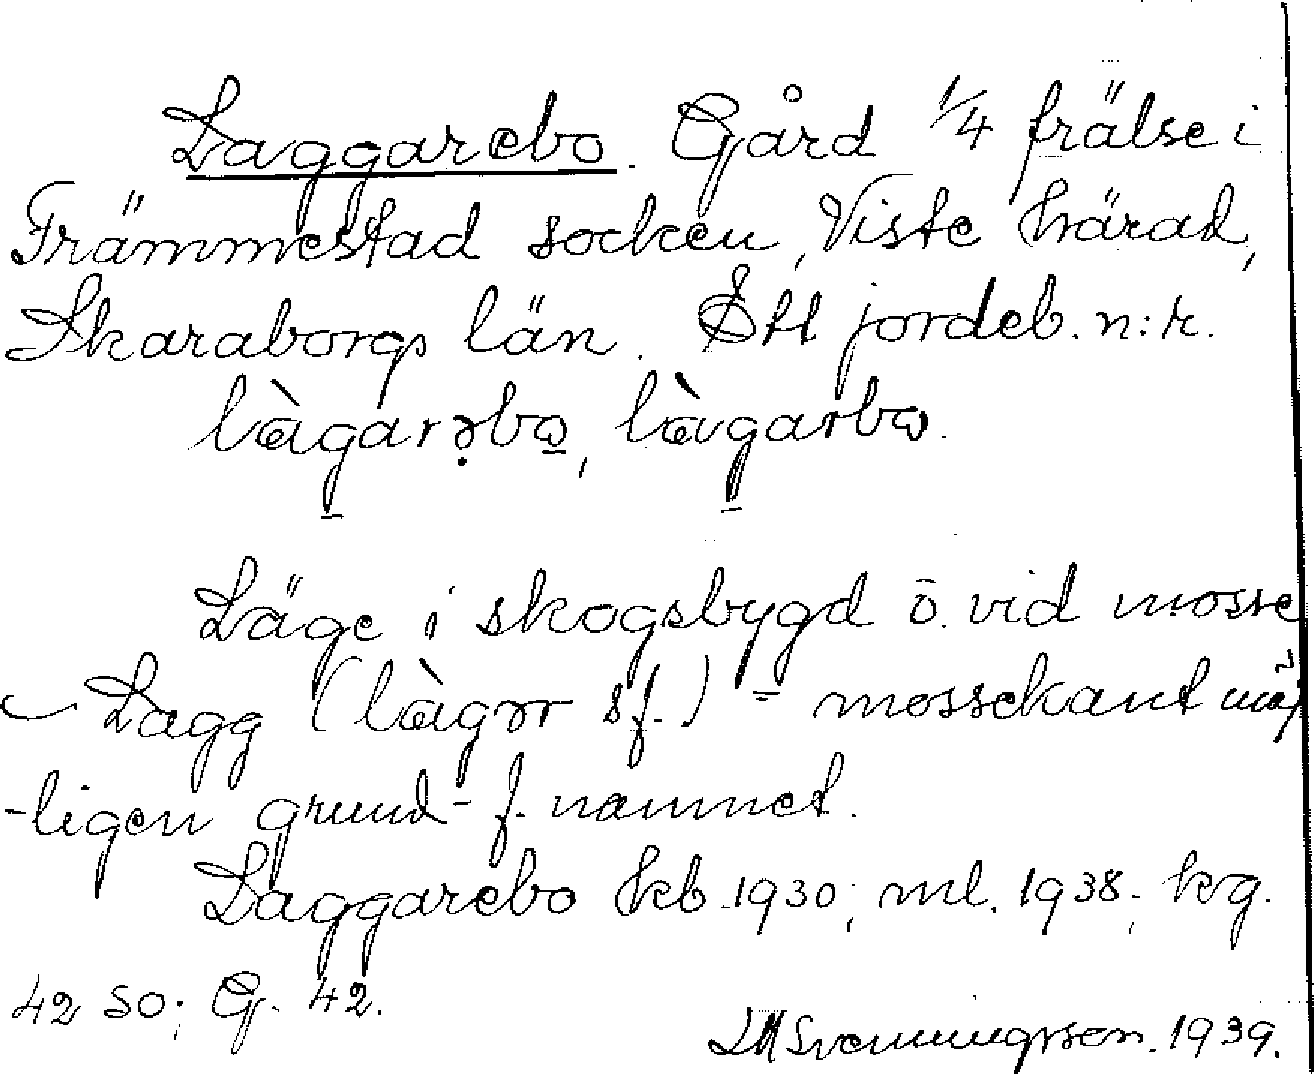 Laggarebo. Gård 1/4 frälse i
Främmestad socken, Viste härad,
Skaraborgs län. jordeb. n:r.
làgarəbo, làgarbo.
Läge i skogsbygd ö. vid mosse
Lagg (làgər sf.) = mossekant möj
-ligen grund- f. namnet.
Laggarebo kb. 1930; ml. 1938; kg.
42 SO; G. 42.
Svenningsson. 1939.